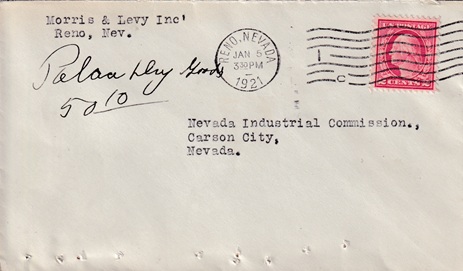 Morris & Levy Inc'
Reno, Nev.
Palace Dry Goods
50 10
RENO, NEVADA
JAN 5
3 30 PM
1921
1
C
U.S. POSTAGE
2 CENTS 2
Nevada Industrial Commission.,
Carson City,
Nevada.